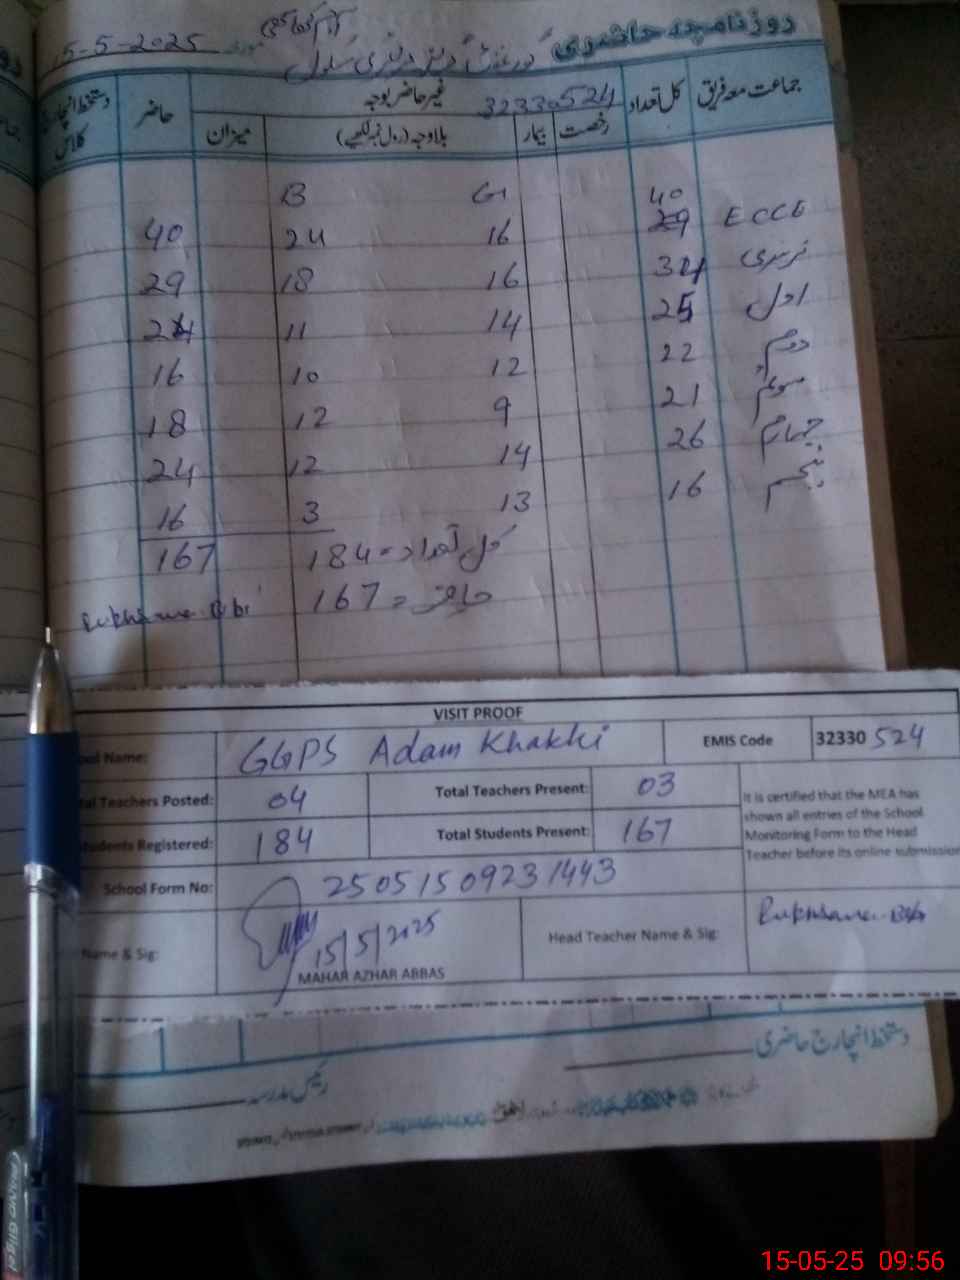 روزنامچہ حاضری گورنمنٹ گرلز پرائمری سکول آدم کھاکھی مورخہ 15-5-2025
جماعت معہ فریق کل تعداد غیر حاضر بوجہ 32330524 حاضر دستخط انچارج کلاس
رخصت بیمار بلاوجہ (رول نمبر لکھیے) میزان
G B
ECCE 40 29 16 24 40
نرسری 34 16 18 29
اول 25 14 11 24
دوم 22 12 10 16
سوئم 21 9 12 18
چہارم 26 14 12 24
پنجم 16 13 3 16
کل تعداد = 184 167
حاضر = 167
Rukhsana Bibi
VISIT PROOF
ool Name: GGPS Adam Khakhi EMIS Code 32330 524
tal Teachers Posted: 04 Total Teachers Present: 03
tudents Registered: 184 Total Students Present: 167
It is certified that the MEA has
shown all entries of the School
Monitoring Form to the Head
Teacher before its online submission
School Form No: 2505150923 1443
Name & Sig: 15/5/2025
MAHAR AZHAR ABBAS
Head Teacher Name & Sig: Rukhsana Bibi
دستخط انچارج حاضری
رئیس مدرسہ
15-05-25 09:56